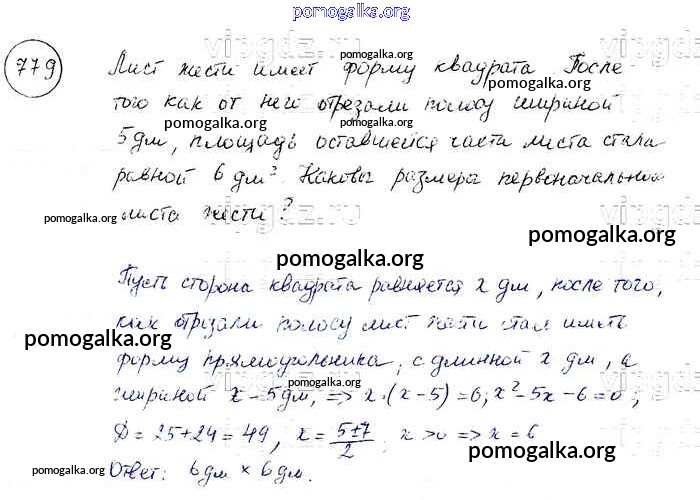 pomogalka.org
779
Лист жести имеет форму квадрата После
pomogalka.org
того как от него отрезали полосу шириной
pomogalka.org
pomogalka.org
5 дм, площадь оставшейся части листа стала
pomogalka.org
равной 6 дм². Каковы размеры первоначального
листа жести?
pomogalka.org
pomogalka.org
vipgdz.ru
pomogalka.org
pomogalka.org
Пусть сторона квадрата равняется x дм, после того,
как отрезали полосу лист жести стал иметь
pomogalka.org
pomogalka.org
форму прямоугольника, с длинной x дм, а
pomogalka.org
шириной x-5 дм, => x·(x-5)=6; x²-5x-6=0;
D=25+24=49, x=(5±7)/2, x>0 => x=6
pomogalka.org
pomogalka.org
Ответ: 6 дм × 6 дм.